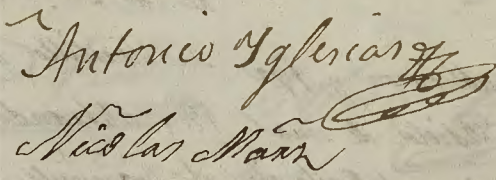 Antonio Yglesias
Nicolas Mañz